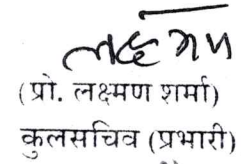 (प्रो. लक्ष्मण शर्मा)
कुलसचिव (प्रभारी)